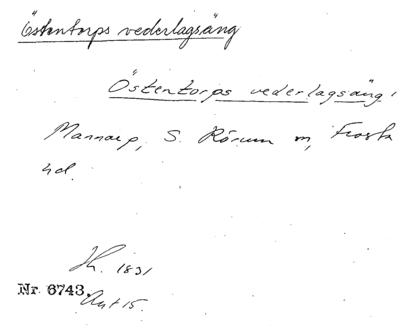 Östentorps vederlagsäng
Östentorps vederlagsäng i
Mannarp, S. Rörum sn, Frosta
hd.
Jh. 1831
Nr. 6743.
Akt 15.